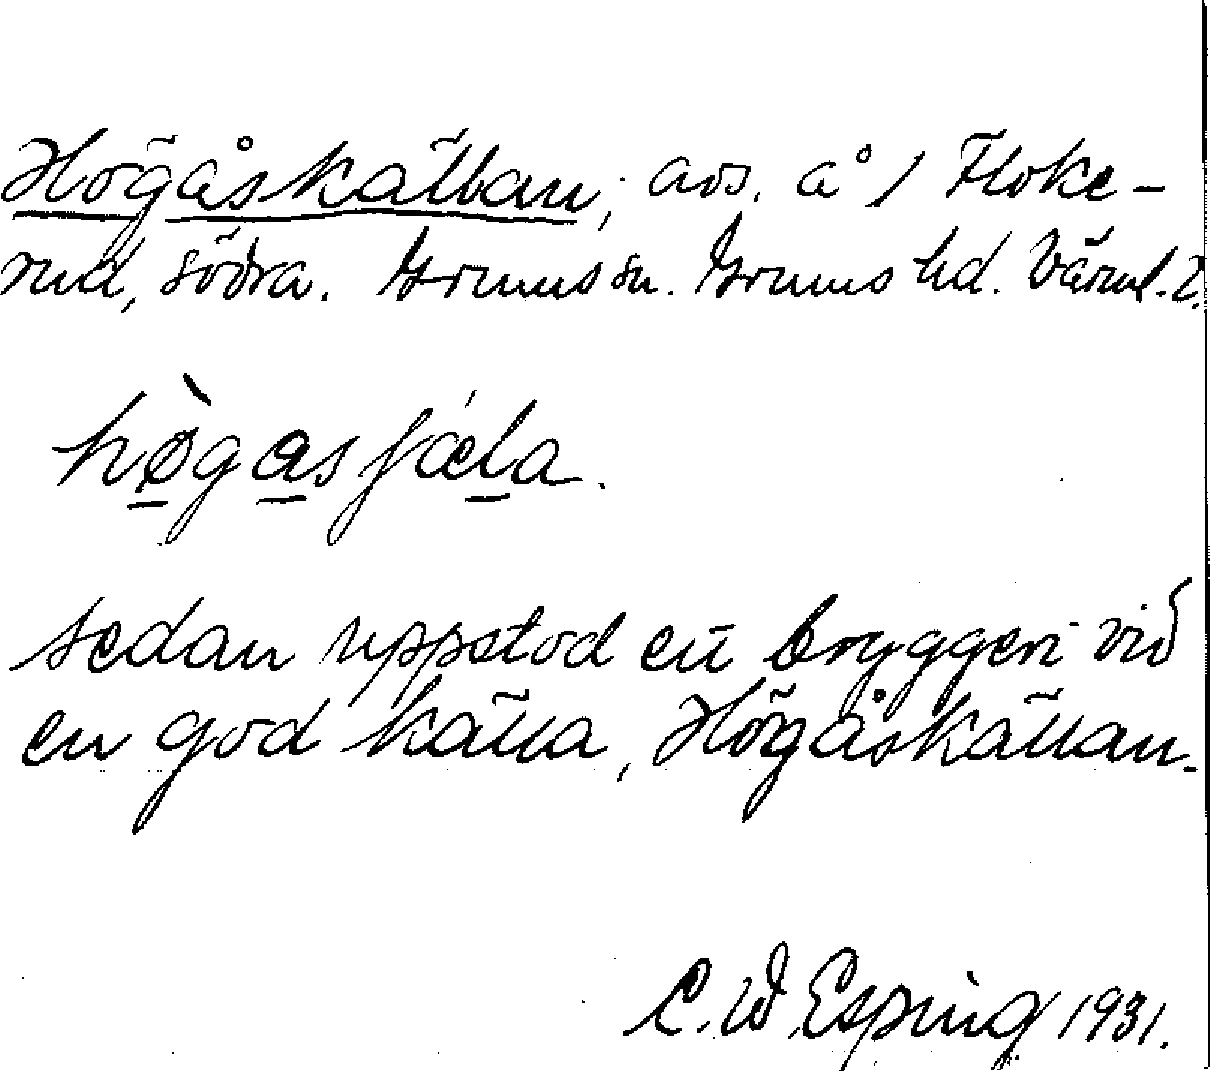 Högåskällan, avs. å 1 Floke-
rud, södra. Grums sn. Grums hd. Värml. l.
hø̀gasfǽla.
sedan uppstod ett bryggeri vid
en god källa, Högåskällan.
C. W. Esping 1931.